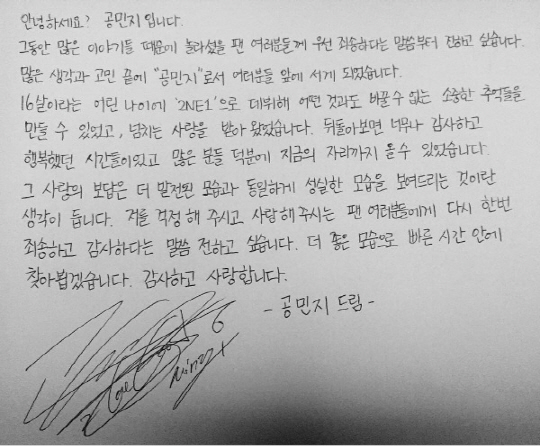 안녕하세요? 공민지입니다.
그동안 많은 이야기들 때문에 놀라셨을 팬 여러분들께 우선 죄송하다는 말씀부터 전하고 싶습니다.
많은 생각과 고민 끝에 "공민지"로서 여러분들 앞에 서게 되었습니다.
16살이라는 어린 나이에 '2NE1'으로 데뷔해 어떤 것과도 바꿀 수 없는 소중한 추억들을
만들 수 있었고, 넘치는 사랑을 받아 왔었습니다. 뒤돌아보면 너무나 감사하고
행복했던 시간들이었고 많은 분들 덕분에 지금의 자리까지 올 수 있었습니다.
그 사랑의 보답은 더 발전된 모습과 동일하게 성실한 모습을 보여드리는 것이란
생각이 듭니다. 저를 걱정해 주시고 사랑해 주시는 팬 여러분들에게 다시 한번
죄송하고 감사하다는 말씀 전하고 싶습니다. 더 좋은 모습으로 빠른 시간 안에
찾아뵙겠습니다. 감사하고 사랑합니다.
- 공민지 드림 -
Minzy